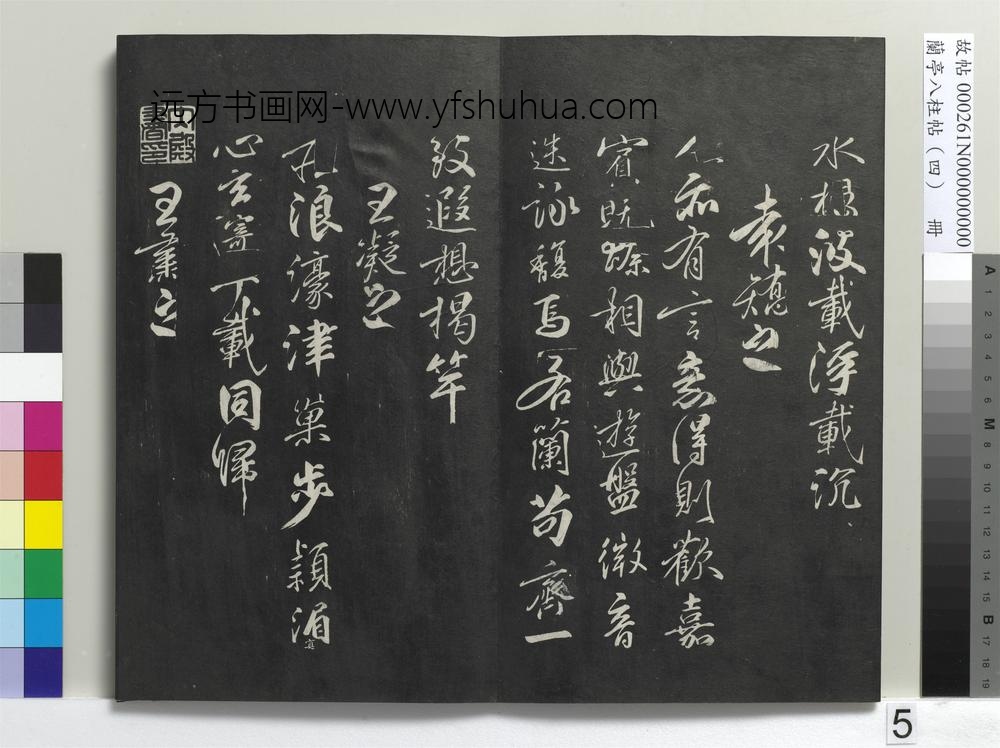 远方书画网-www.yfshuhua.com
故帖 000261N000000000
蘭亭八柱帖（四） 冊
水根波載浮載沉
袁嶠之
人亦有言意得則歡嘉
賓既臻相與遊盤微音
迭詠馥焉若蘭苟齊一
致遐想揭竿
王凝之
孔浪濠津巢步潁湄
冥
心玄寄千載同歸
王肅之
A
1
2
3
4
5
6
M
8
9
10
11
12
13
14
15
B
17
18
19
5